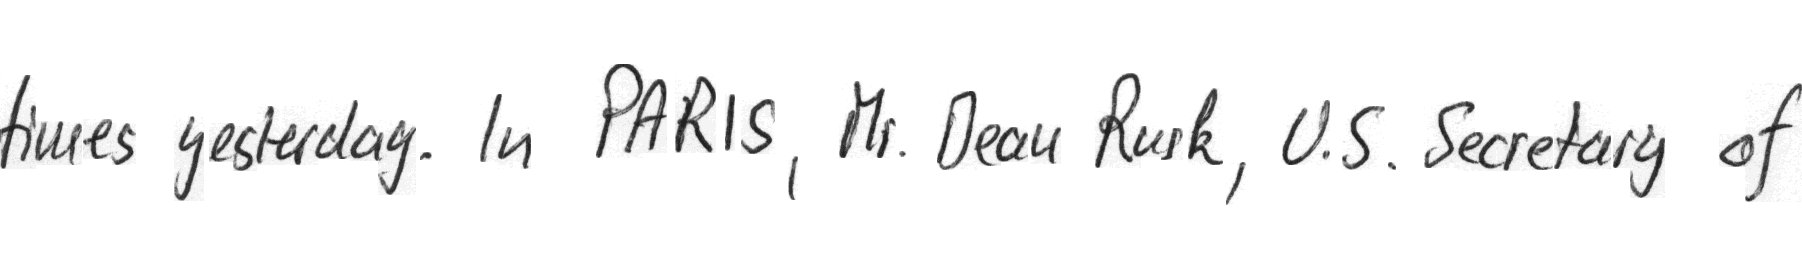 times yesterday. In PARIS, Mr. Dean Rusk, U.S. Secretary of